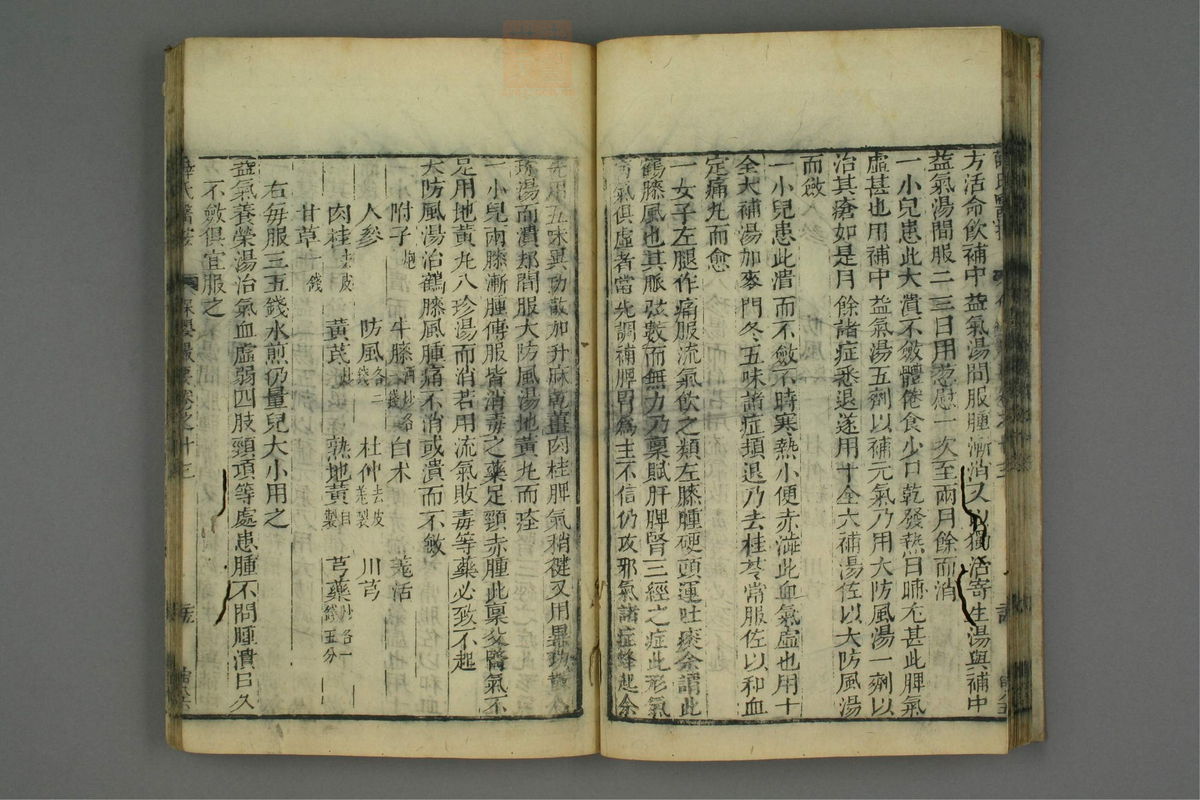 方活命飲補中益氣湯間服腫漸消又以獨活寄生湯與補中
益氣湯間服二三日用葱慰一次至兩月餘而消
一小兒患此大潰不斂體倦食少口乾發熱日晡尤甚此脾氣
虛甚也用補中益氣湯五劑以補元氣乃用大防風湯一劑以
治其瘡如是月餘諸症悉退遂用十全大補湯佐以大防風湯
而斂
一小兒患此潰而不斂不時寒熱小便赤澁此血氣虛也用十
全大補湯加麥門冬五味諸症頓退乃去桂苓常服佐以和血
定痛丸而愈
一女子左腿作痛服流氣飲之類左膝腫硬頭運吐痰余謂此
鶴膝風也其脈弦數而無力乃稟賦肝脾腎三經之症此形氣
氣俱虛者當先調補脾胃為主不信仍攻邪氣諸症蜂起余
先用五味異功散加升麻乾薑肉桂脾氣稍健又用異功散八
珍湯而潰却間服大防風湯地黃丸而痊
一小兒兩膝漸腫傅服皆消毒之藥足頸赤腫此稟父腎氣不
足用地黃丸八珍湯而消若用流氣敗毒等藥必致不起
大防風湯治鶴膝風腫痛不消或潰而不斂
附子炮 牛膝酒炒各一錢 白朮 羌活
人參 防風各二錢 杜仲去皮薑製 川芎
肉桂去皮 黃芪炒 熟地黃自製 芎藥炒各一錢五分
甘草一錢
右每服三五錢水煎仍量兒大小用之
益氣養榮湯治氣血虛弱四肢頸項等處患腫不問腫潰日久
不斂俱宜服之